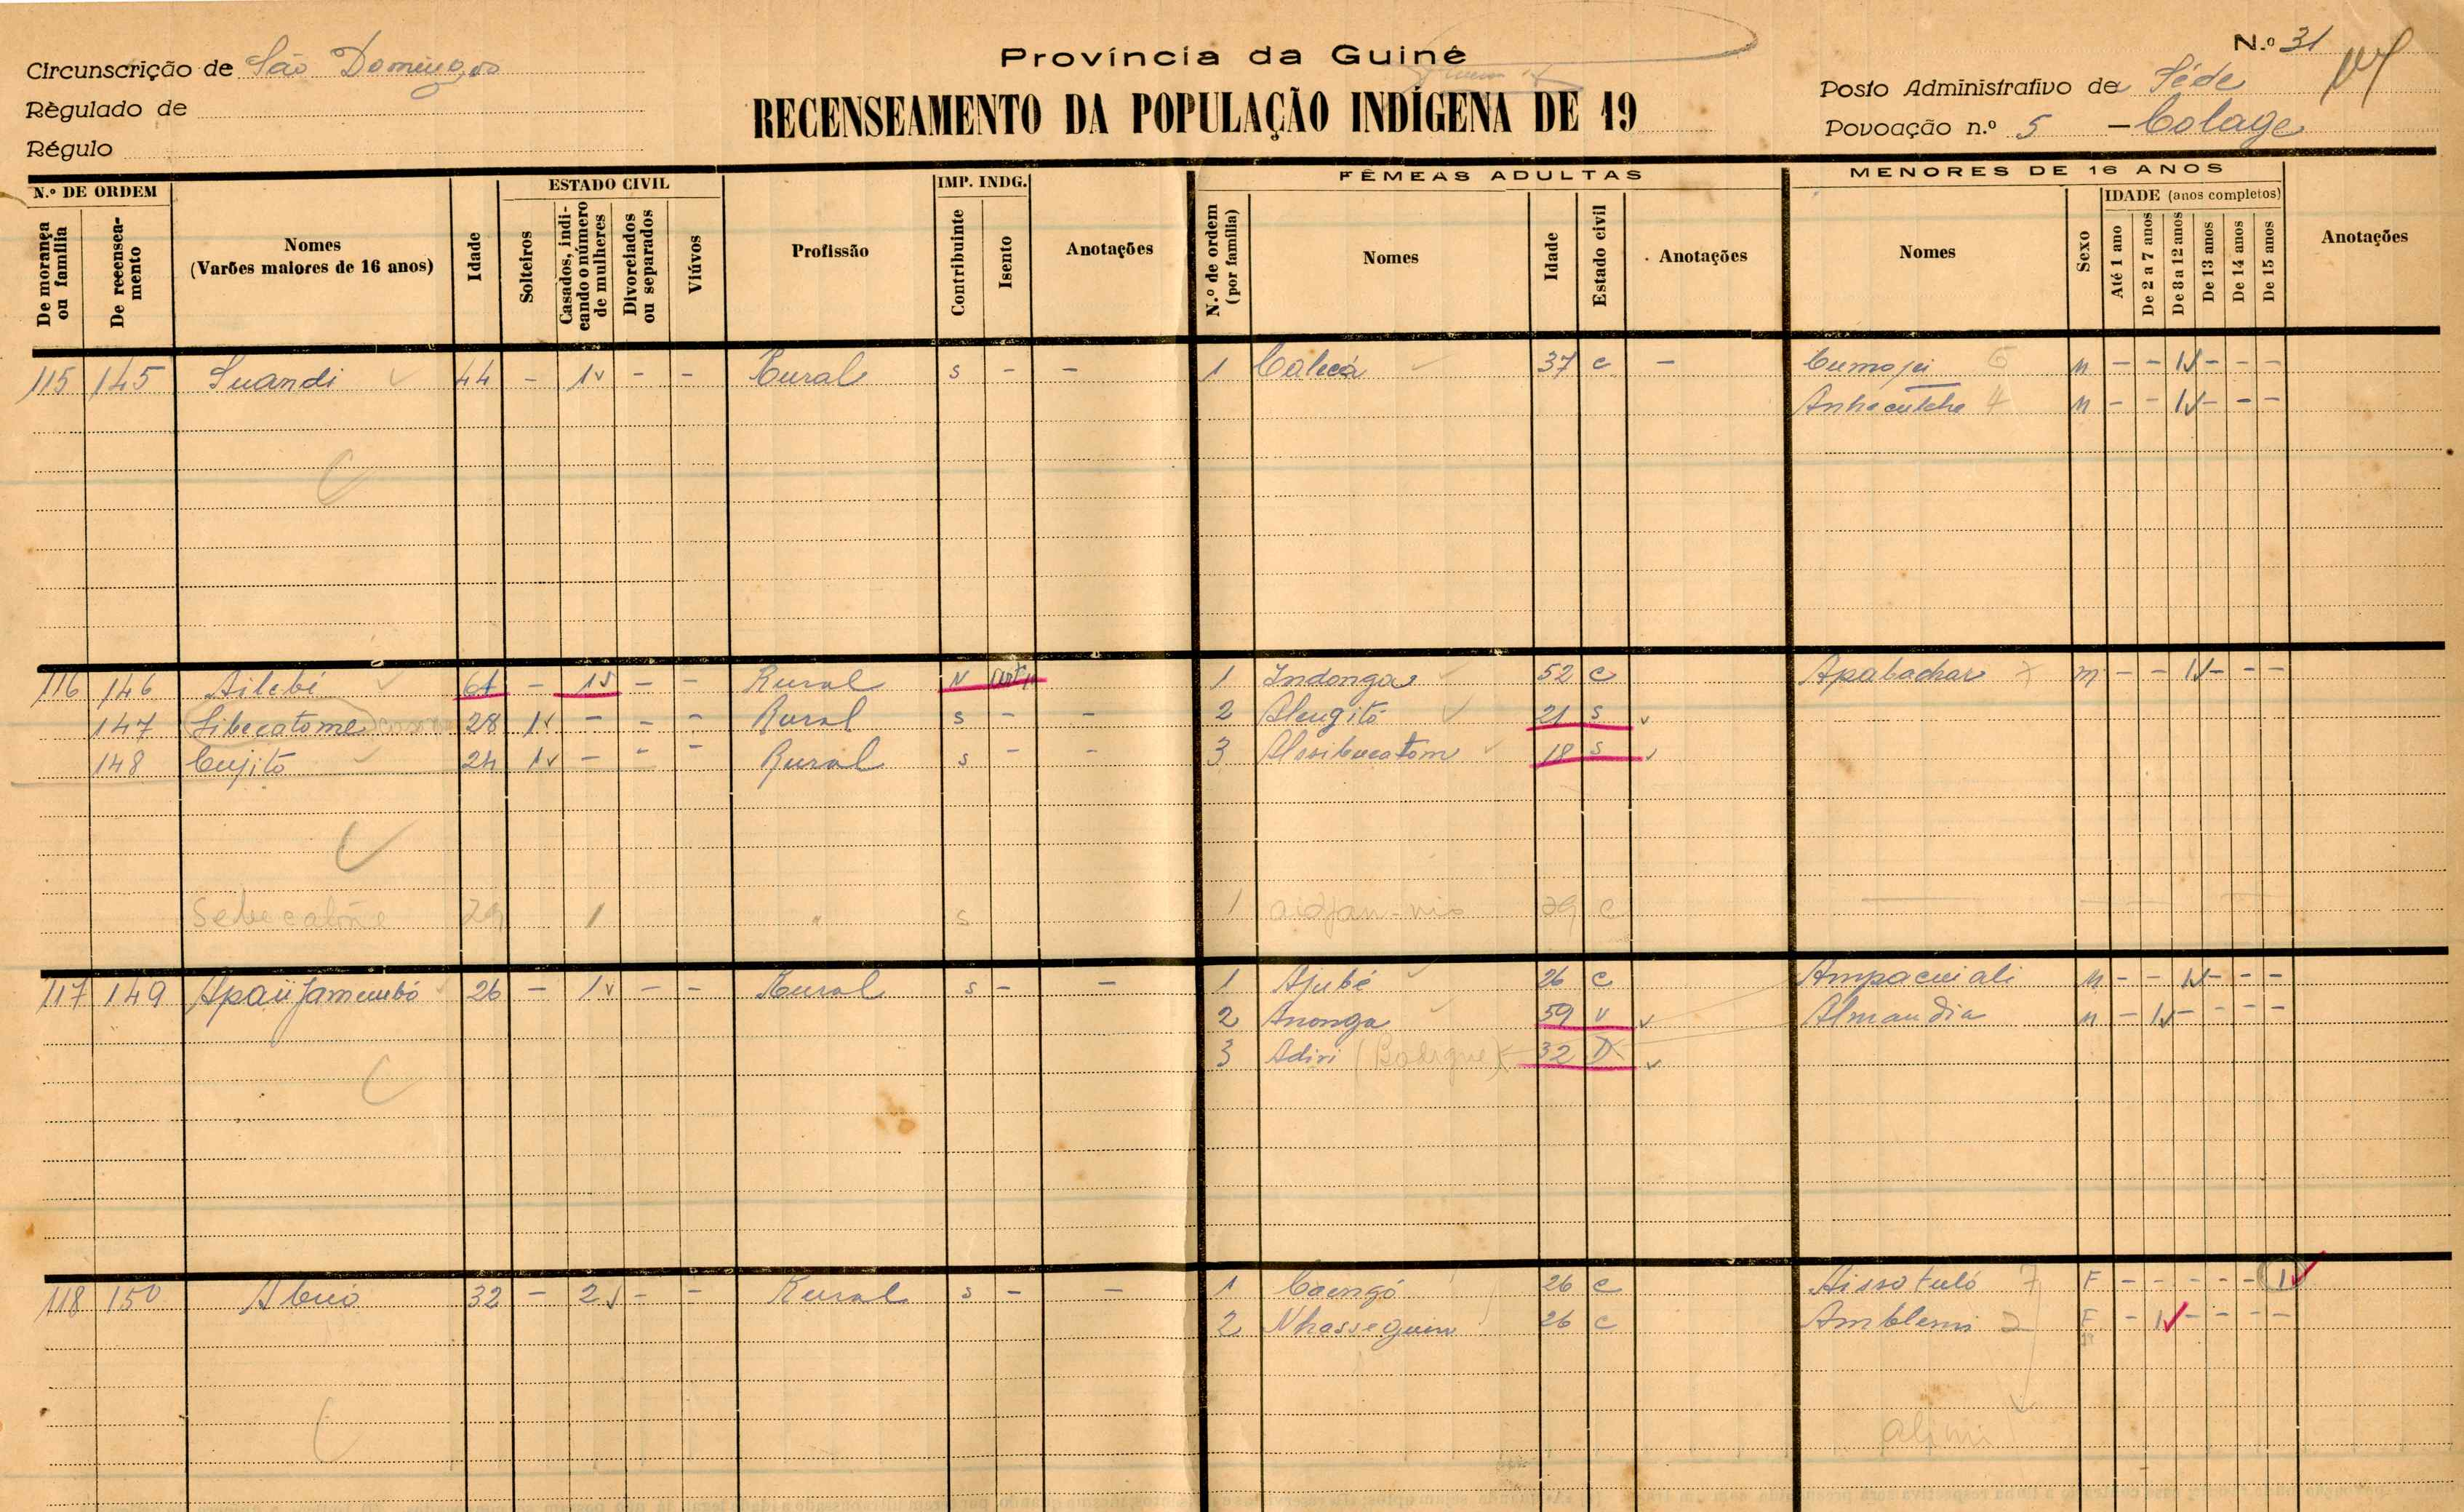 Província da Guiné
N.º 31
Circunscrição de São Domingos
Posto Administrativo de Séde
Règulado de
RECENSEAMENTO DA POPULAÇÃO INDÍGENA DE 19
Povoação n.º 5 - Colage
Régulo
N.º DE ORDEM
De morança ou família
De recenseamento
Nomes
(Varões maiores de 16 anos)
Idade
ESTADO CIVIL
Solteiros
Casados, indicando o número de mulheres
Divorciados ou separados
Viúvos
Profissão
IMP. INDG.
Contribuinte
Isento
Anotações
FÊMEAS ADULTAS
N.º de ordem (por família)
Nomes
Idade
Estado civil
Anotações
MENORES DE 16 ANOS
Nomes
Sexo
IDADE (anos completos)
Até 1 ano
De 2 a 7 anos
De 8 a 12 anos
De 13 anos
De 14 anos
De 15 anos
Anotações
115 145 Suandi 44 - 1 - - Rural s - - 1 Calecá 37 c - 6 M - - 1 - - -
Anhacutche 4 M - - 1 - - -
116 146 Ailebi 61 - 1 - - Rural N 1 Indonga 52 c Apabachar M - - 1 - - -
147 Sibecatome 28 1 - - - Rural s - - 2 Alengitó 21 s
148 Cujitó 24 1 - - - Rural s - - 3 Alssibucatom 18 s
Sebecatone 29 1 " s 1 29 c
117 149 26 - 1 - - Rural s - - 1 Ajubé 26 c Ampacuiali M - - 1 - - -
2 Anonga 59 v Almandia M - 1 - - - -
3 Adiri 32 D
118 150 Abuó 32 - 2 - - Rural s - - 1 Caengó 26 c Aissatuló 7 F - - - - - 1
2 Nhasseguem 26 c Amblemi 2 F - 1 - - - -